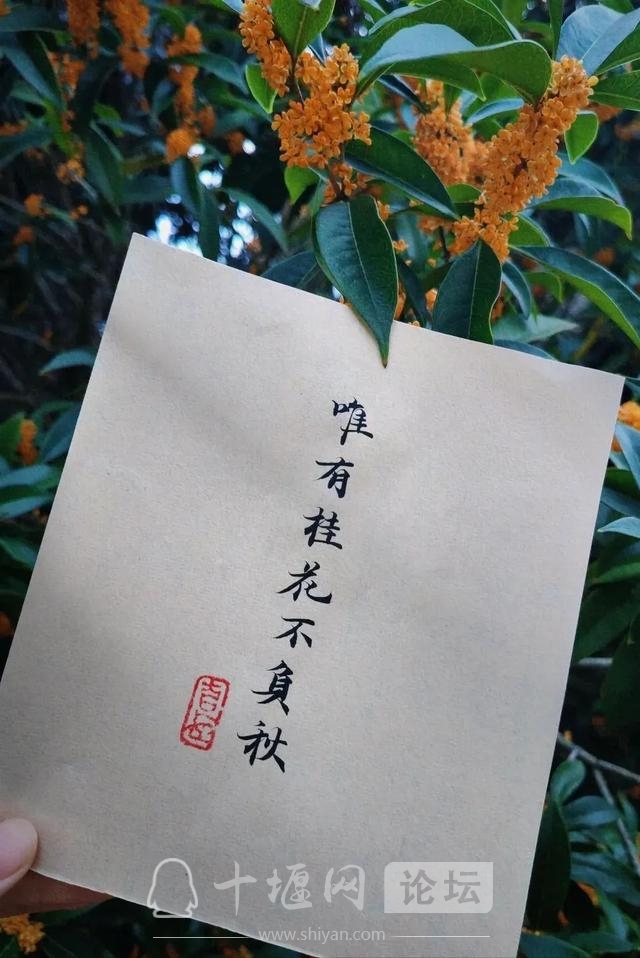 唯有桂花不負秋
十堰网 论坛
www.shiyan.com